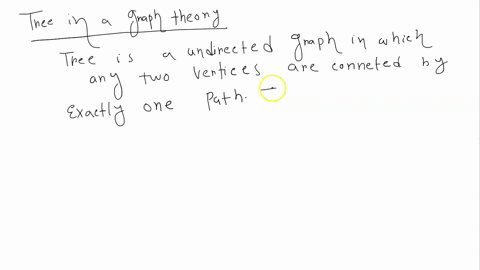 Tree in a graph theory
Tree is a undirected graph in which
any two vertices are conneted by
Exactly one path. —